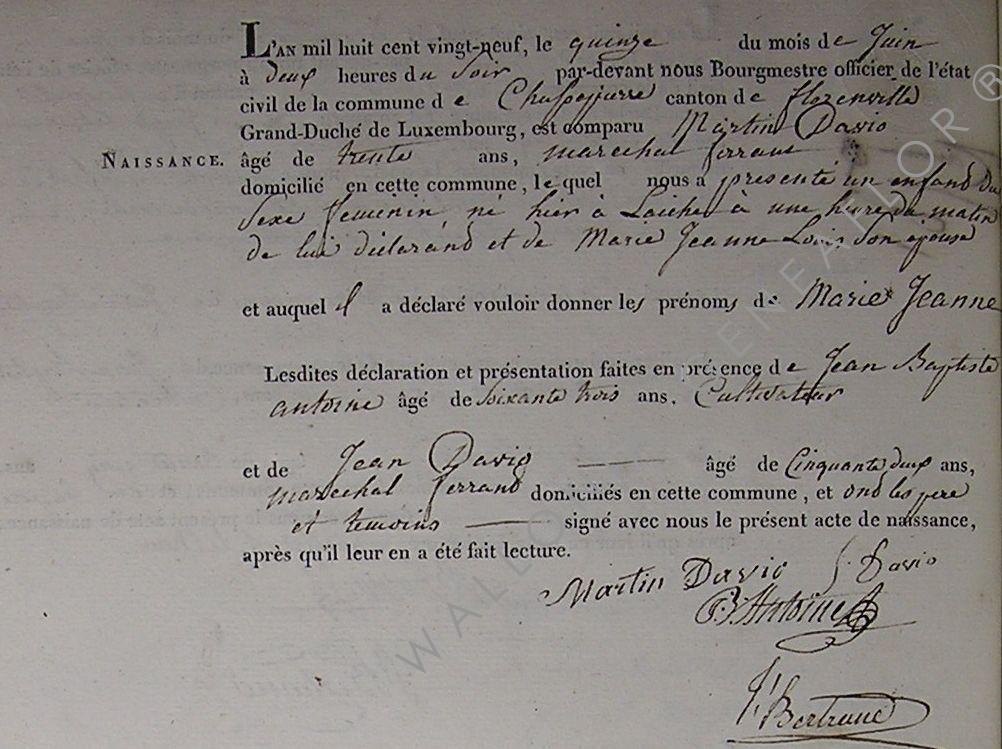 L'AN mil huit cent vingt-neuf, le quinze du mois de Juin
à deux heures du Soir par-devant nous Bourgmestre officier de l'état
civil de la commune de Chassepierre canton de florenville
Grand-Duché de Luxembourg, est comparu Martin Davio
NAISSANCE. âgé de trente ans, marechal ferrant
domicilié en cette commune, lequel nous a presenté un enfand du
Sexe feminin né hier à Laiche à une heure du matin
de lui déclarand et de Marie Jeanne Louis Son épouse
et auquel il a déclaré vouloir donner les prénoms de Marie Jeanne
Lesdites déclaration et présentation faites en présence de Jean Baptiste
antoine âgé de Soixante trois ans, Cultivateur
et de Jean Davio âgé de Cinquante deux ans,
marechal ferrand domiciliés en cette commune, et ond les pere
et temoins signé avec nous le présent acte de naissance,
après qu'il leur en a été fait lecture.
Martin Davio J. Davio
Antoine
Bertrand